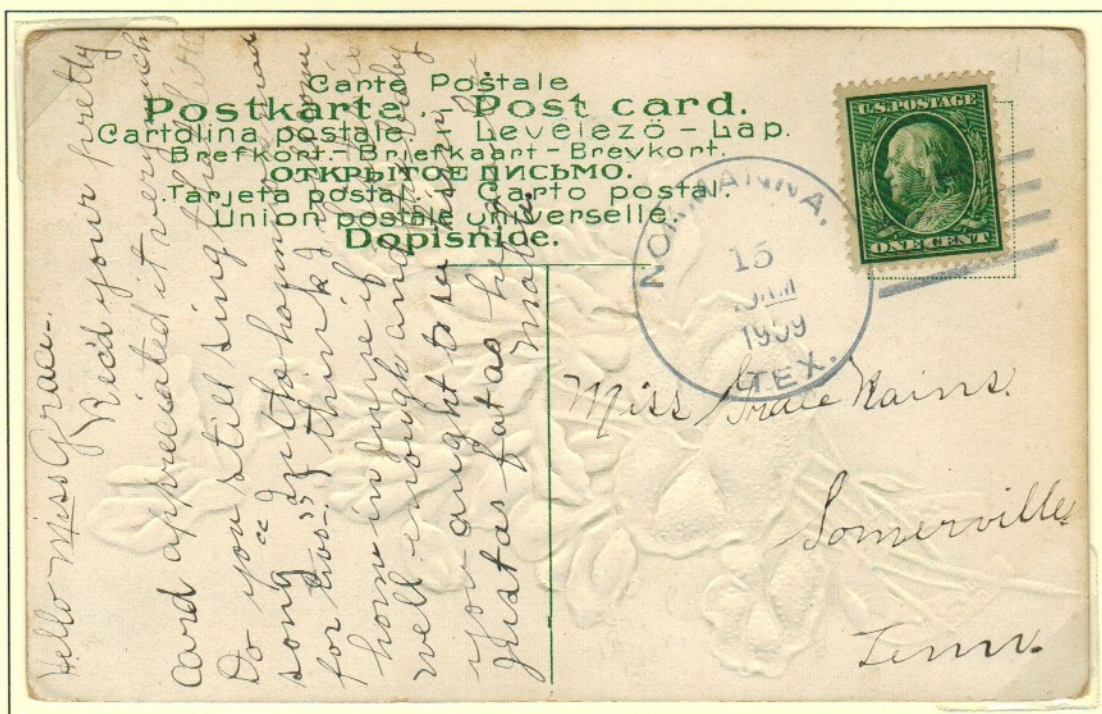 Carte Postale
Postkarte. - Post card.
Cartolina postale - Levelezö - Lap.
Brefkort. - Briefkaart - Brevkort.
ОТКРЫТОЕ ПИСЬМО.
Tarjeta postal. Carto postal.
Union postale universelle.
Dopisnice.
U.S. POSTAGE
ONE CENT
NORMANNA,
15
AM
1909
TEX.
Miss Grace
Somerville
Tenn.
Hello Miss Grace-.
Rec'd your pretty
card appreciated it very much
Do you still sing the little
song
for two-. think I
home in June if
well enough and
you aught to see
just as fat as